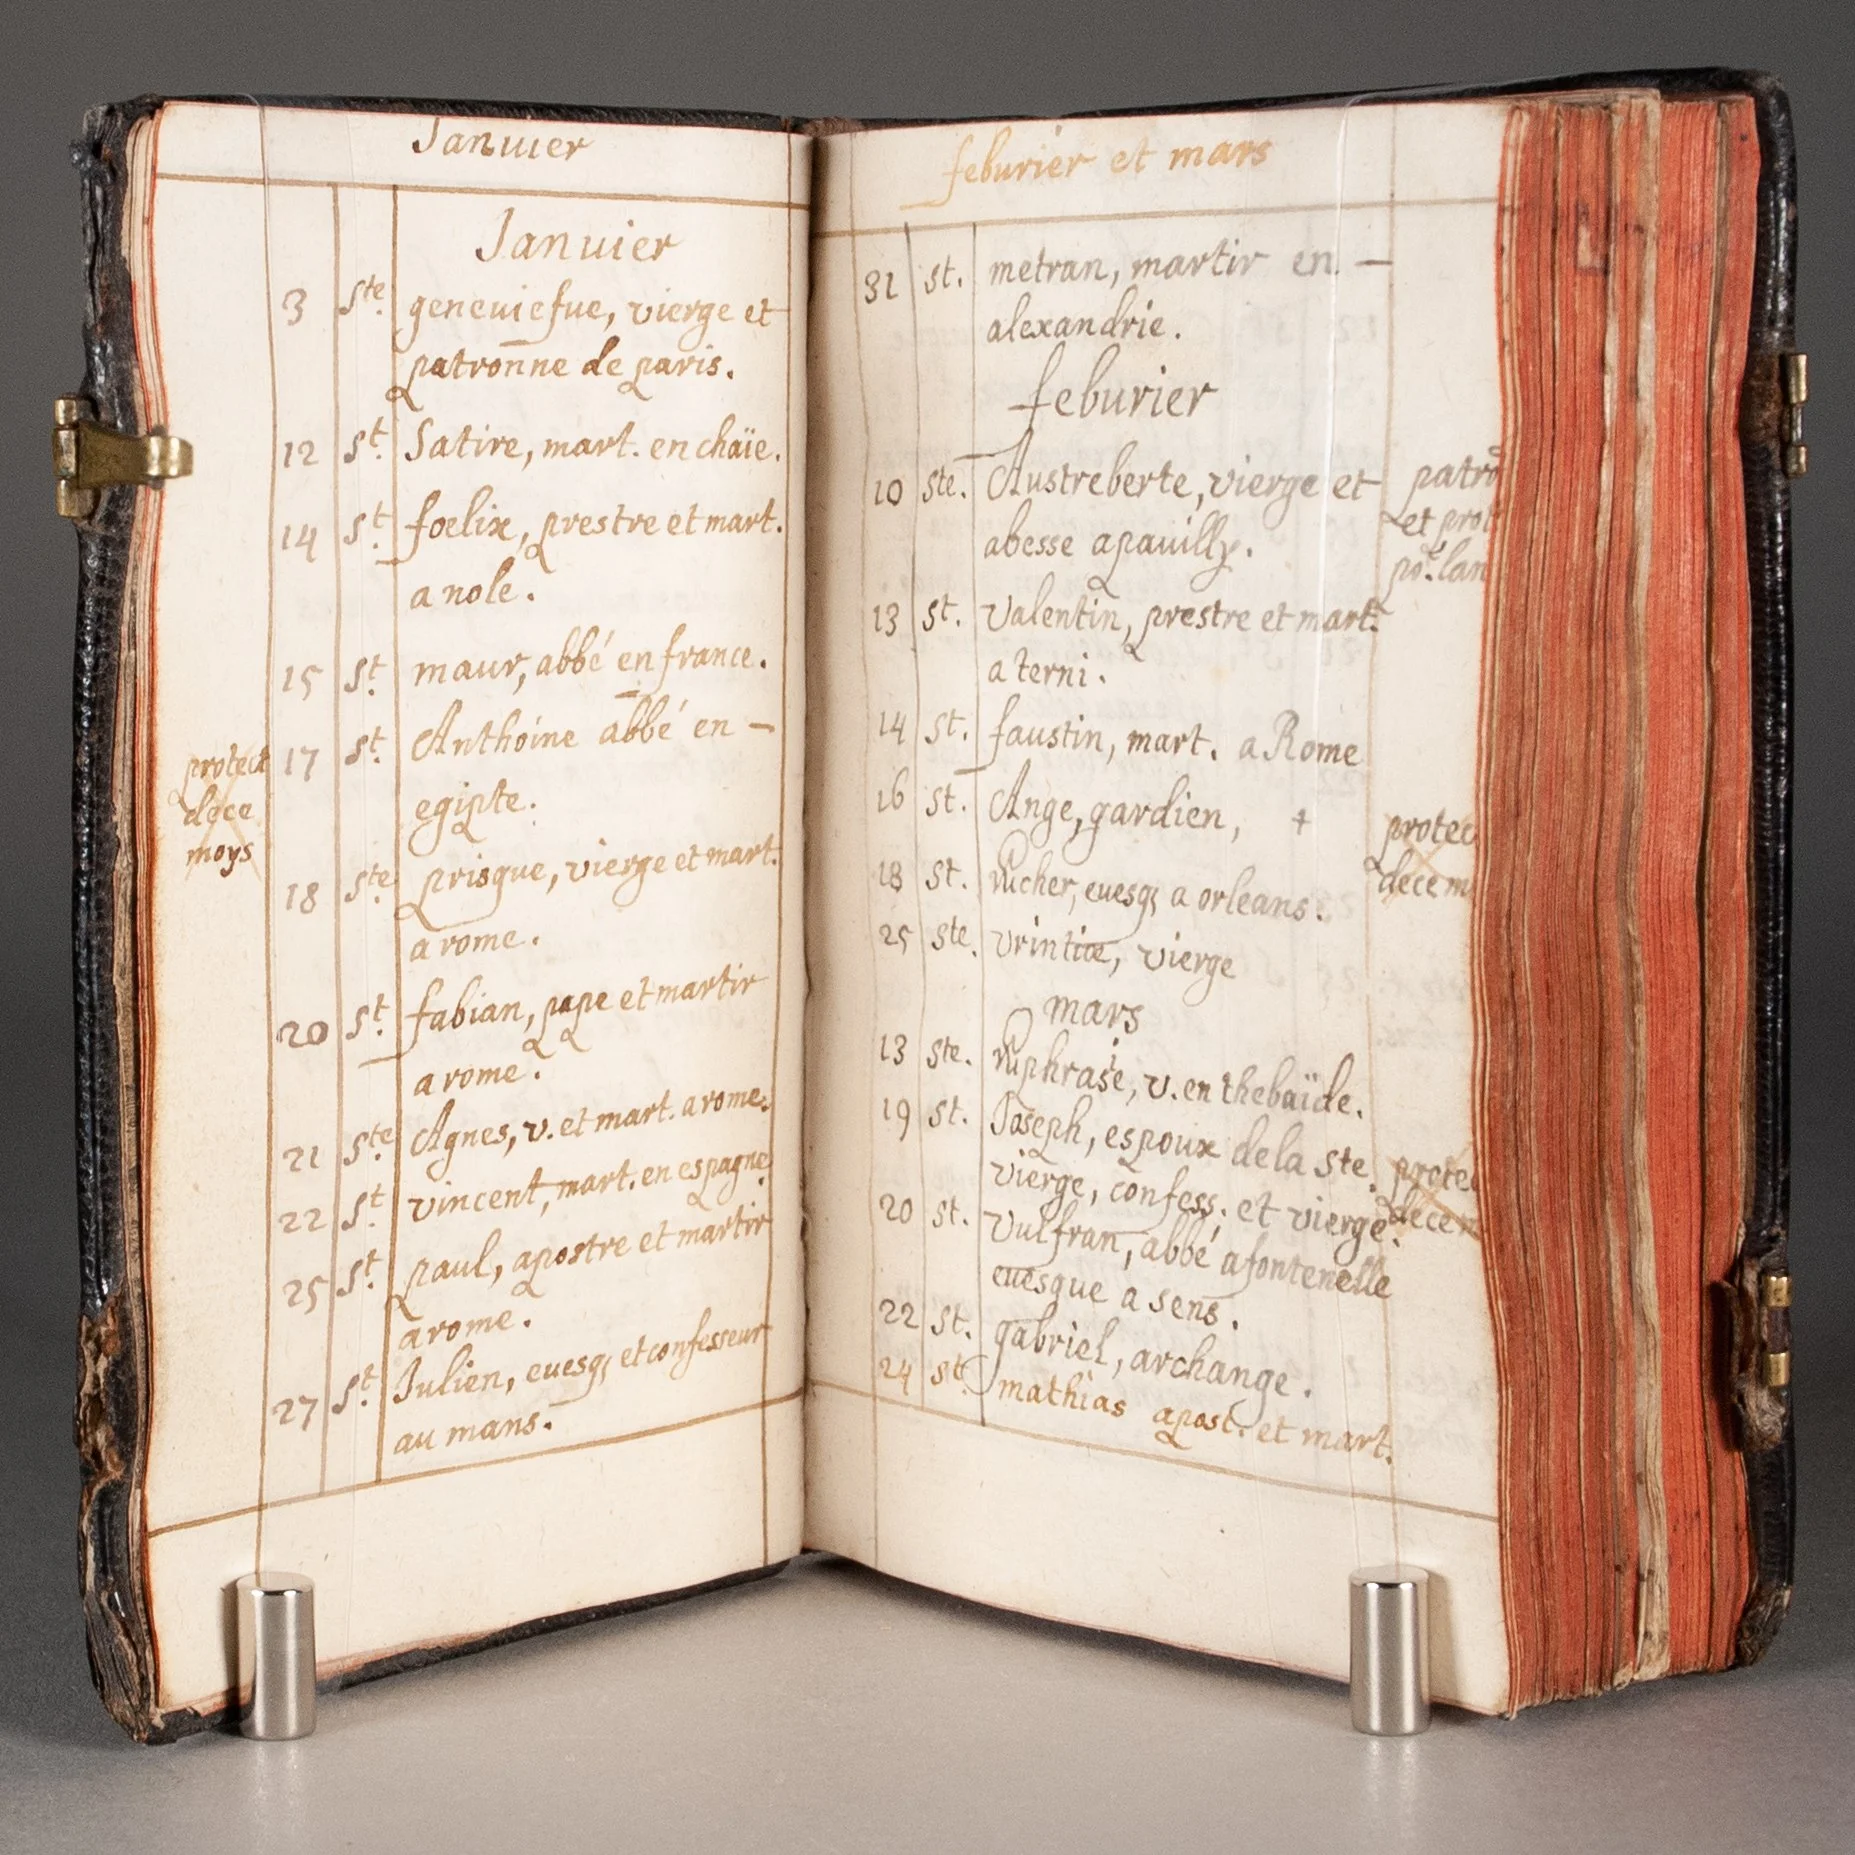 Januier
Januier
3 Ste. geneuiefue, vierge et
patron̄ne de paris.
12 St. Satire, mart. en chaïe.
14 St. foelix, prestre et mart.
a nole.
15 St. maur, abbé en france.
17 St. Anthoine abbé en —
egipte.
protect
de ce
moys
18 Ste. prisque, vierge et mart.
a rome.
20 St. fabian, pape et martir
a rome.
21 Ste Agnes, v. et mart. a rome.
22 St. vincent, mart. en espagne.
25 St. paul, apostre et martir
a rome.
27 St. Julien, euesq; et confesseur
au mans.
feburier et mars
31 st. metran, martir en —
alexandrie.
feburier
10 ste. Austreberte, vierge et
abesse a pauilly.
patrō
et prot
po.r lan
13 st. Valentin, prestre et mart.
a terni.
14 st. faustin, mart. a Rome
16 st. Ange, gardien, +
protec
de ce m
18 st. Eucher, euesq; a orleans.
25 ste. vrintice, vierge
mars
13 ste. Euphrasie, v. en thebaïde.
19 st. Joseph, espoux de la ste.
vierge, confess. et vierge.
protec
de ce m
20 st. Vulfran, abbé a fontenelle
euesque a sens.
22 st. gabriel, archange.
24 st. mathias apost. et mart.